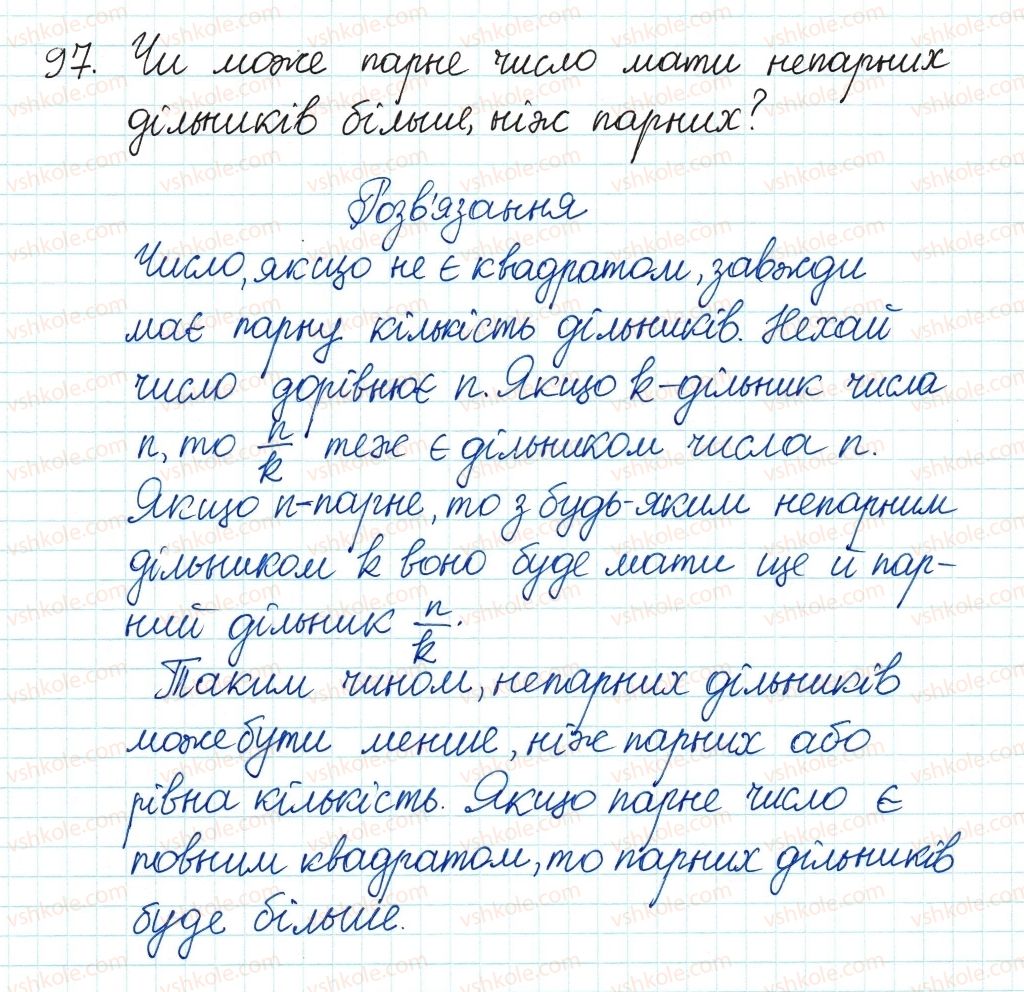 97. Чи може парне число мати непарних
дільників більше, ніж парних?
Розв'язання
Число, якщо не є квадратом, завжди
має парну кількість дільників. Нехай
число дорівнює n. Якщо k-дільник числа
n, то n/k теж є дільником числа n.
Якщо n-парне, то з будь-яким непарним
дільником k воно буде мати ще й пар-
ний дільник n/k.
Таким чином, непарних дільників
може бути менше, ніж парних або
рівна кількість. Якщо парне число є
повним квадратом, то парних дільників
буде більше.